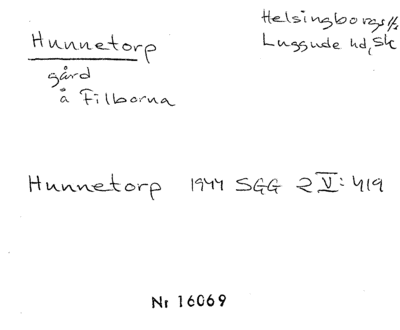 Hunnetorp
gård
å Filborna
Helsingborgs lfs
Luggude hd, Sk
Hunnetorp 1944 SGG 2 V: 419
Nr 16069